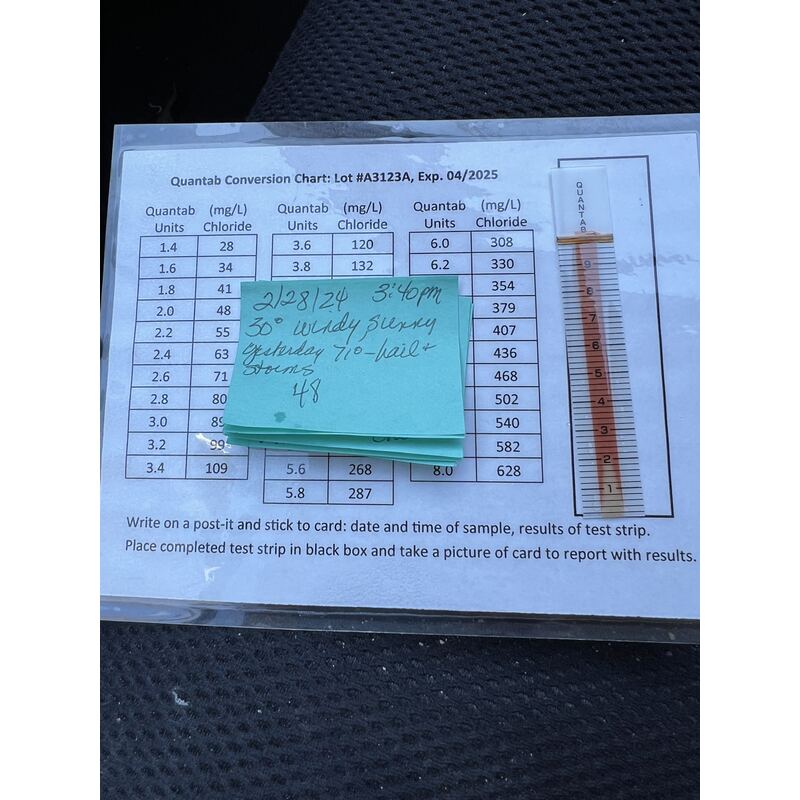 Quantab Conversion Chart: Lot #A3123A, Exp. 04/2025
Quantab Units (mg/L) Chloride
1.4 28
1.6 34
1.8 41
2.0 48
2.2 55
2.4 63
2.6 71
2.8 80
3.0
3.2 99
3.4 109
Quantab Units (mg/L) Chloride
3.6 120
3.8 132
5.6 268
5.8 287
Quantab Units (mg/L) Chloride
6.0 308
6.2 330
354
379
407
436
468
502
540
582
8.0 628
2/28/24 3:40pm
30° windy, sunny
yesterday 71°-hail +
storms
48
QUANTAB
9
8
7
6
5
4
3
2
1
Write on a post-it and stick to card: date and time of sample, results of test strip.
Place completed test strip in black box and take a picture of card to report with results.